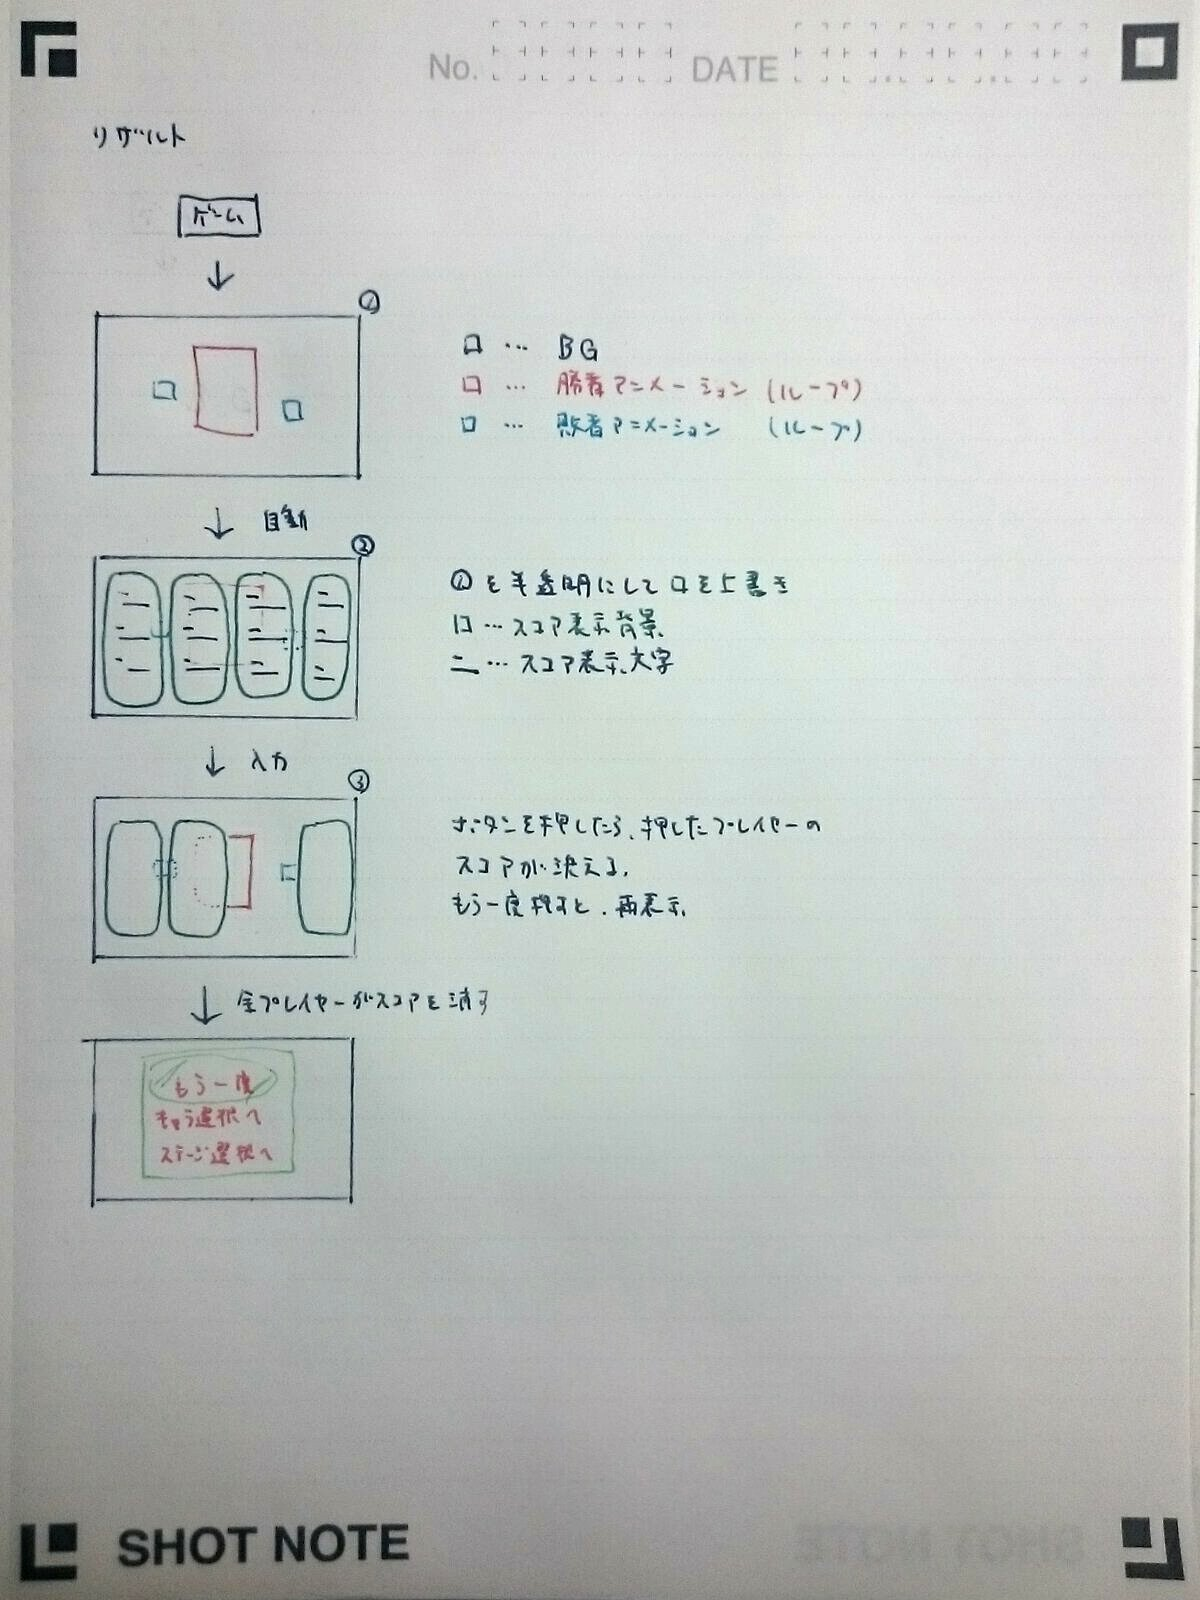 No. DATE
リザルト
ゲーム
①
□ … BG
□ … 勝者アニメーション (ループ)
□ … 敗者アニメーション (ループ)
自動
②
①を半透明にして□を上書き
□ … スコア表示背景
ニ … スコア表示文字
入力
③
ボタンを押したら、押したプレイヤーの
スコアが消える。
もう一度押すと、再表示
全プレイヤーがスコアを消す
もう一度
キャラ選択へ
ステージ選択へ
SHOT NOTE